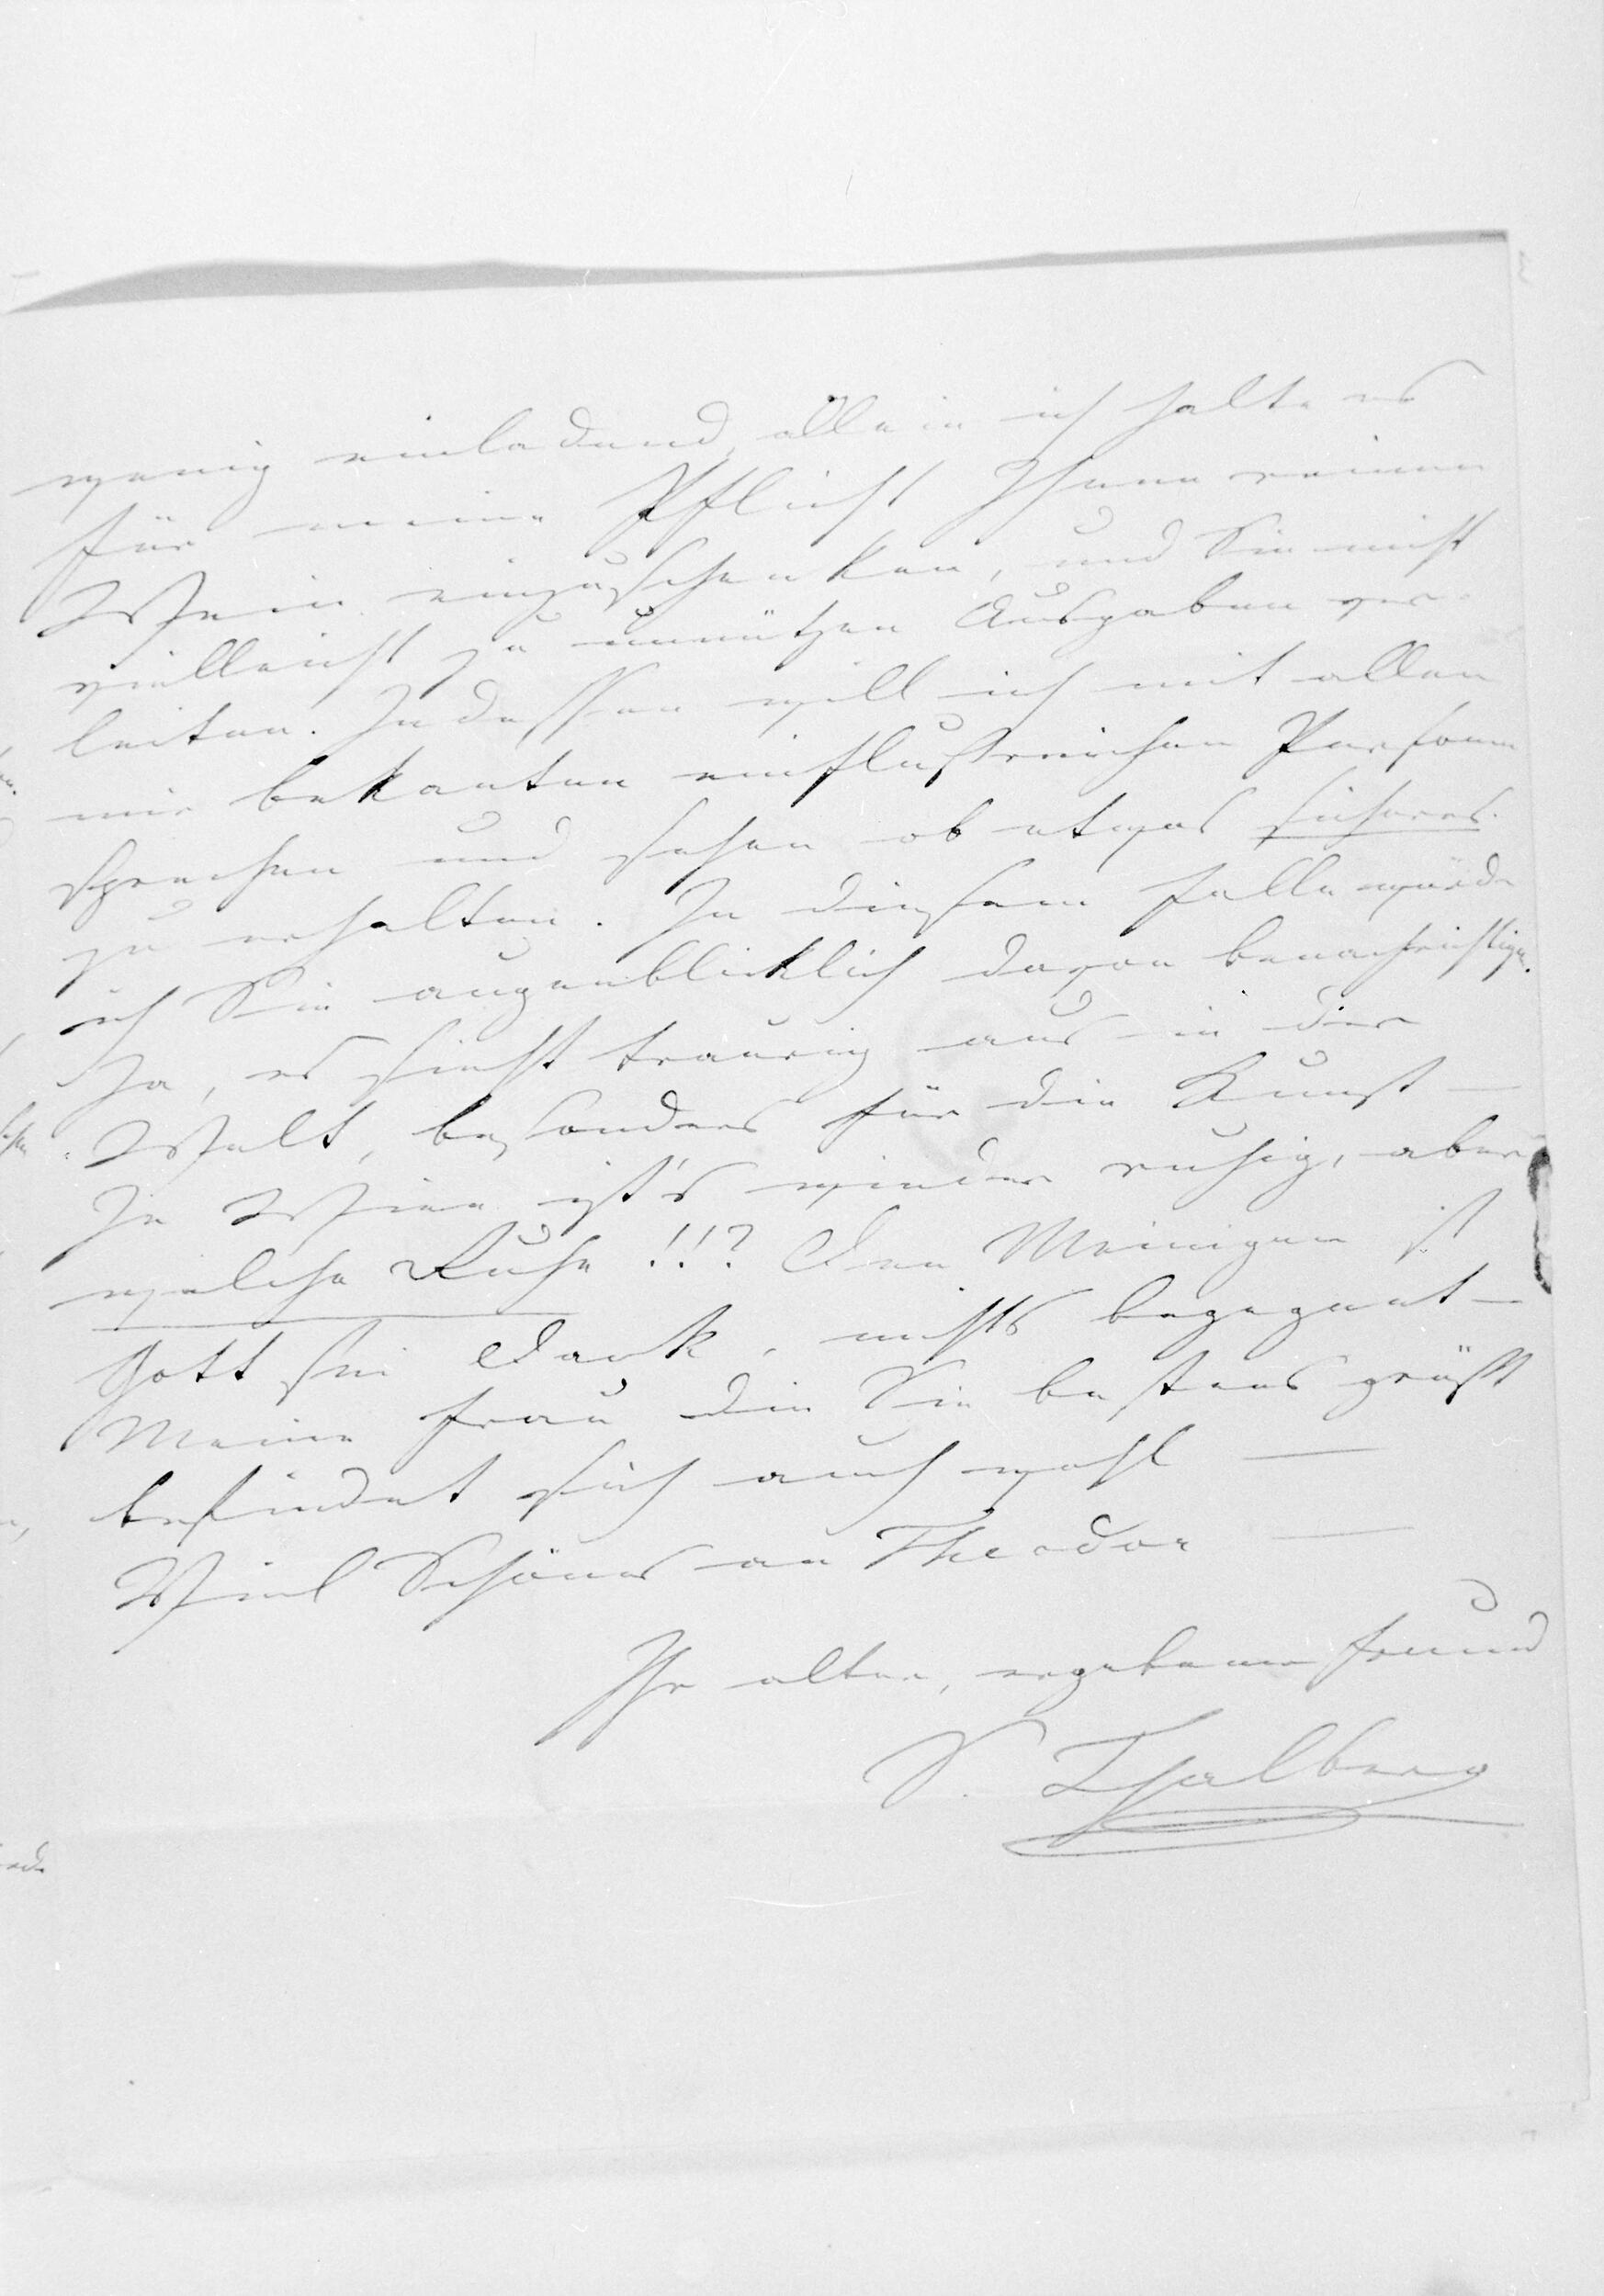 wenig einladend, allein ich halte es
für meine Pflicht Ihnen reinen
Wein einzuschenken, und Sie nicht
vielleicht zu unnützen Ausgaben ver-
leiten. Indessen will ich mit allen
mir bekanten einflußreichen Personen
sprechen und sehen ob etwas sicheres
zu erhalten. In diesem Falle würde
ich Sie augenblicklich davon benachrichtigen.
Ja, es sieht traurig aus in der
Welt, besonders für die Kunst —
In Wien ist's wieder ruhig, aber
welche Ruhe !!? Den Meinigen ist
Gott sei Dank, nichts begegnet —
Meine Frau die Sie bestens grüßt
befindet sich auch wohl —
Viel Schönes an Theodor —
Ihr alter, ergebener Freund
S. Thalberg